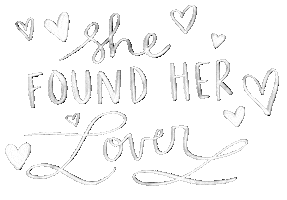 she
FOUND HER
Lover